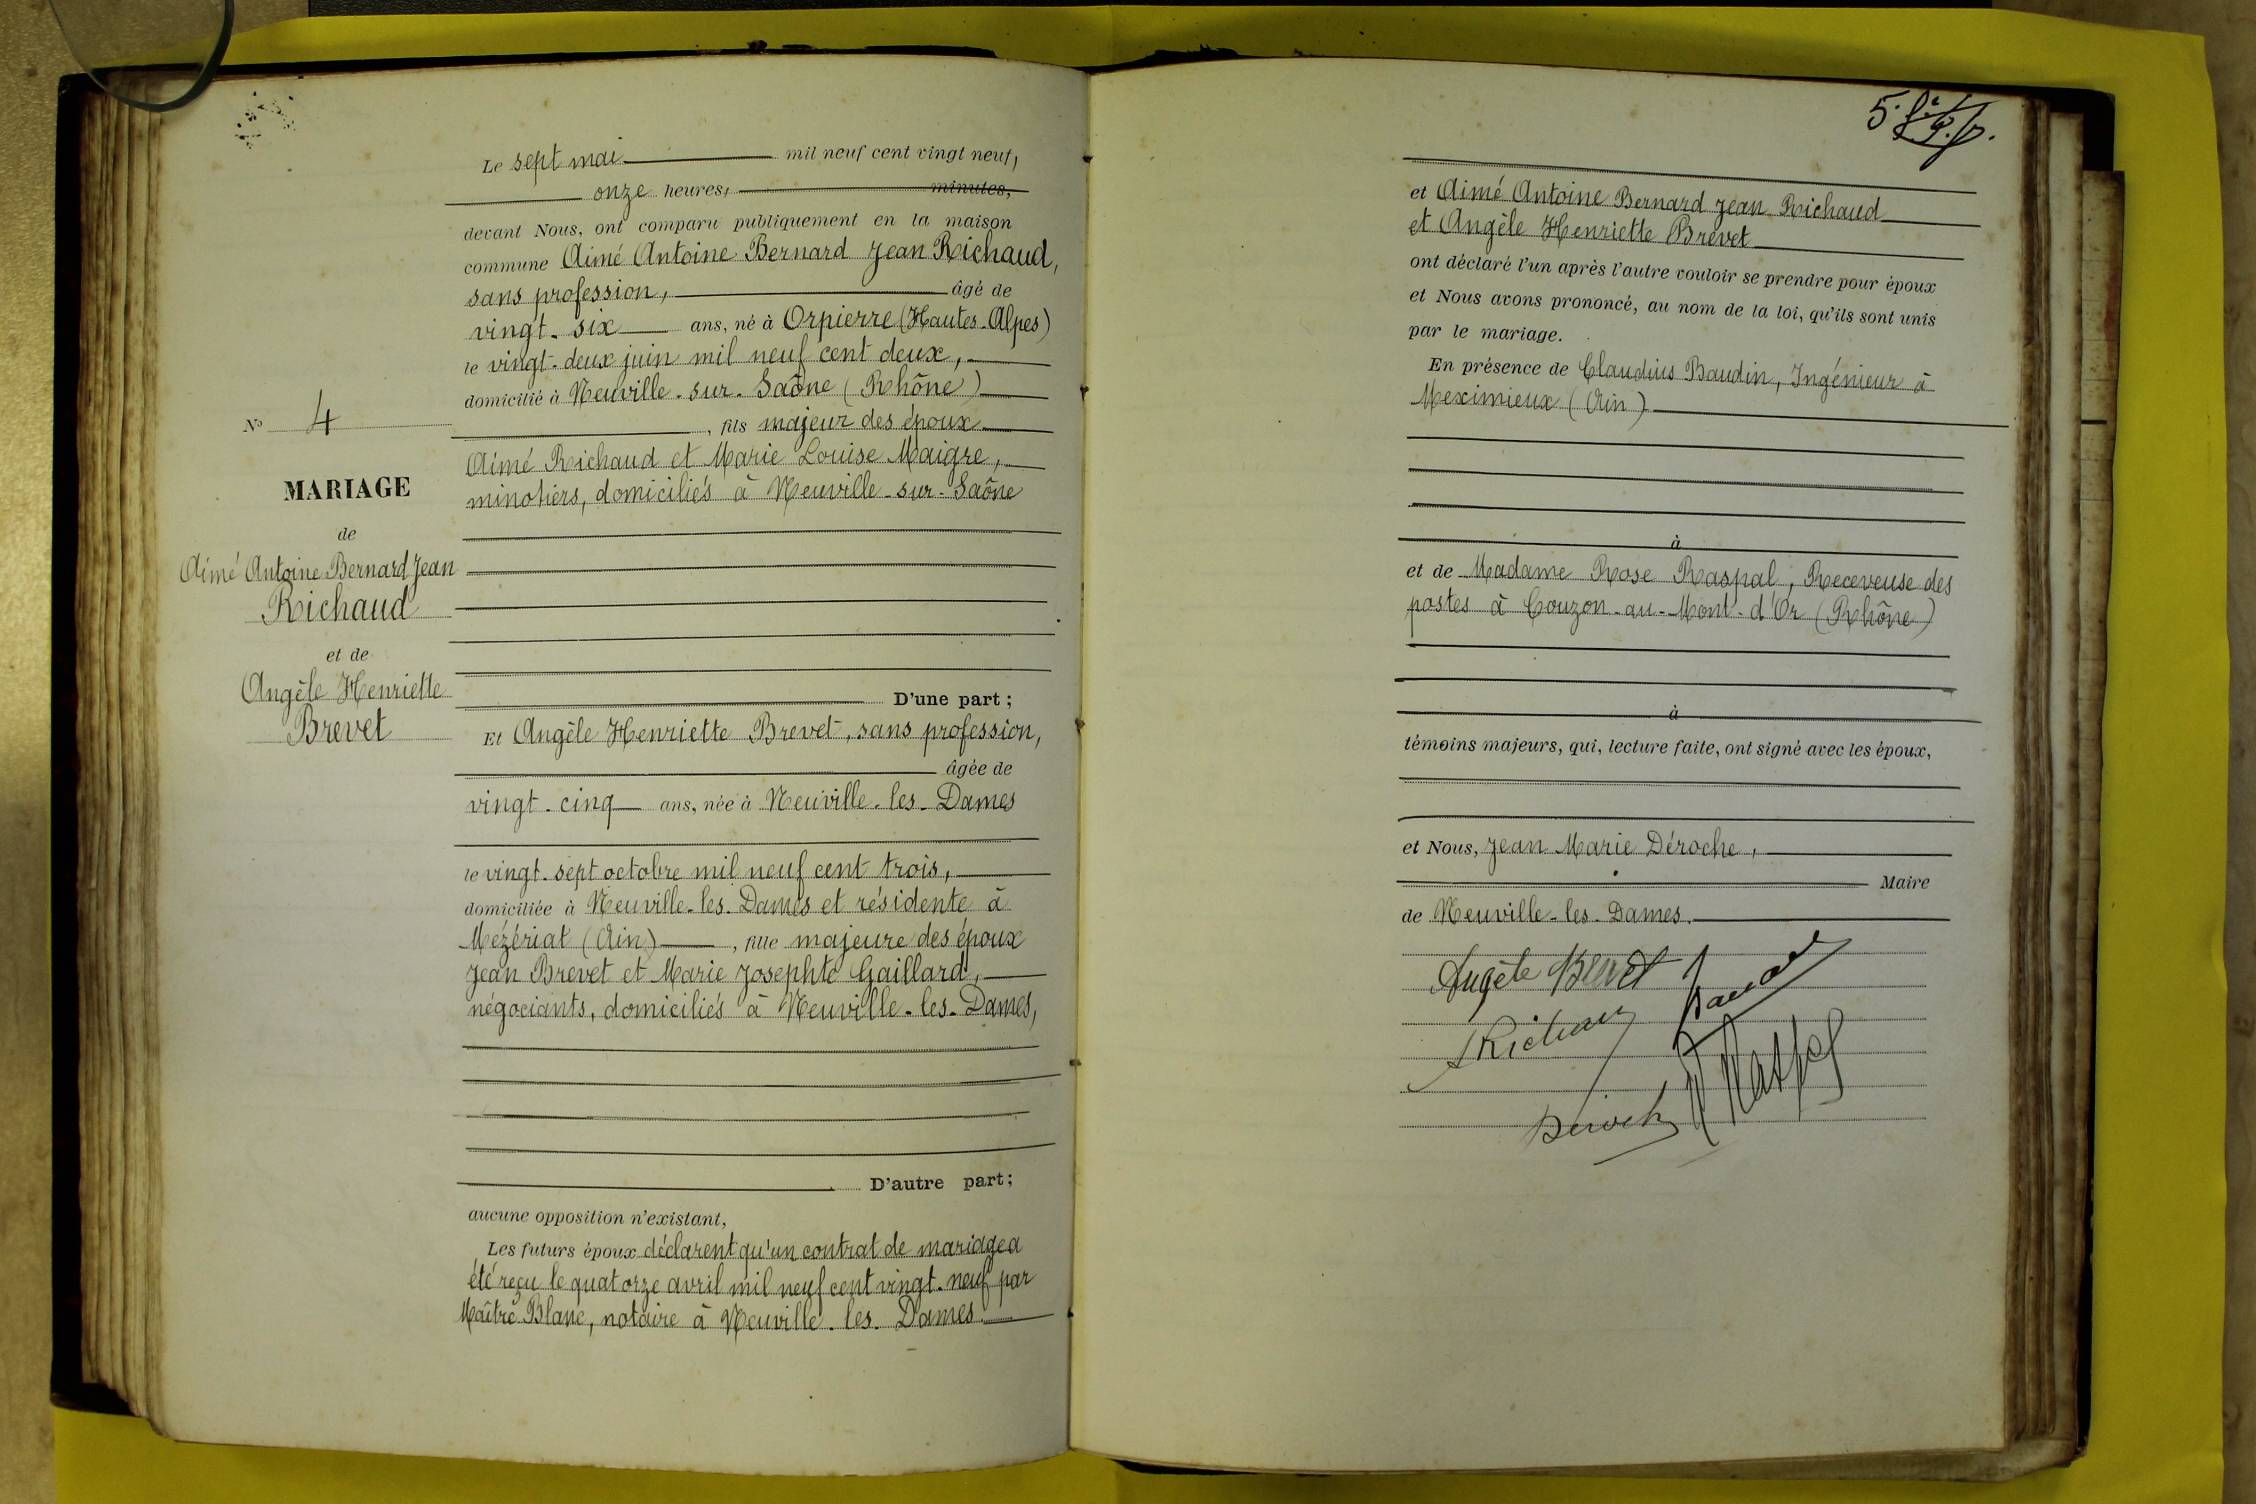 Le sept mai mil neuf cent vingt neuf,
onze heures, minutes,
devant Nous, ont comparu publiquement en la maison
commune Aimé Antoine Bernard Jean Richaud,
sans profession, âgé de
vingt-six ans, né à Orpierre (Hautes-Alpes)
le vingt-deux juin mil neuf cent deux,
domicilié à Neuville-sur-Saône (Rhône)
, fils majeur des époux
Aimé Richaud et Marie Louise Maigre,
minotiers, domiciliés à Neuville-sur-Saône
No 4
MARIAGE
de
Aimé Antoine Bernard Jean
Richaud
et de
Angèle Henriette
Brevet
D'une part;
Et Angèle Henriette Brevet, sans profession,
âgée de
vingt-cinq ans, née à Neuville-les-Dames
le vingt-sept octobre mil neuf cent trois,
domiciliée à Neuville-les-Dames et résidente à
Mézériat (Ain), fille majeure des époux
Jean Brevet et Marie Josephte Gaillard,
négociants, domiciliés à Neuville-les-Dames,
D'autre part;
aucune opposition n'existant,
Les futurs époux déclarent qu'un contrat de mariage a
été reçu le quatorze avril mil neuf cent vingt-neuf par
Maître Blanc, notaire à Neuville-les-Dames.
5.
et Aimé Antoine Bernard Jean Richaud
et Angèle Henriette Brevet
ont déclaré l'un après l'autre vouloir se prendre pour époux
et Nous avons prononcé, au nom de la loi, qu'ils sont unis
par le mariage.
En présence de Claudius Baudin, Ingénieur à
Meximieux (Ain)
à
et de Madame Rose Raspal, Receveuse des
postes à Couzon-au-Mont-d'Or (Rhône)
à
témoins majeurs, qui, lecture faite, ont signé avec les époux,
et Nous, Jean Marie Déroche,
Maire
de Neuville-les-Dames.
Angèle Brevet
A Richaud
R Raspal